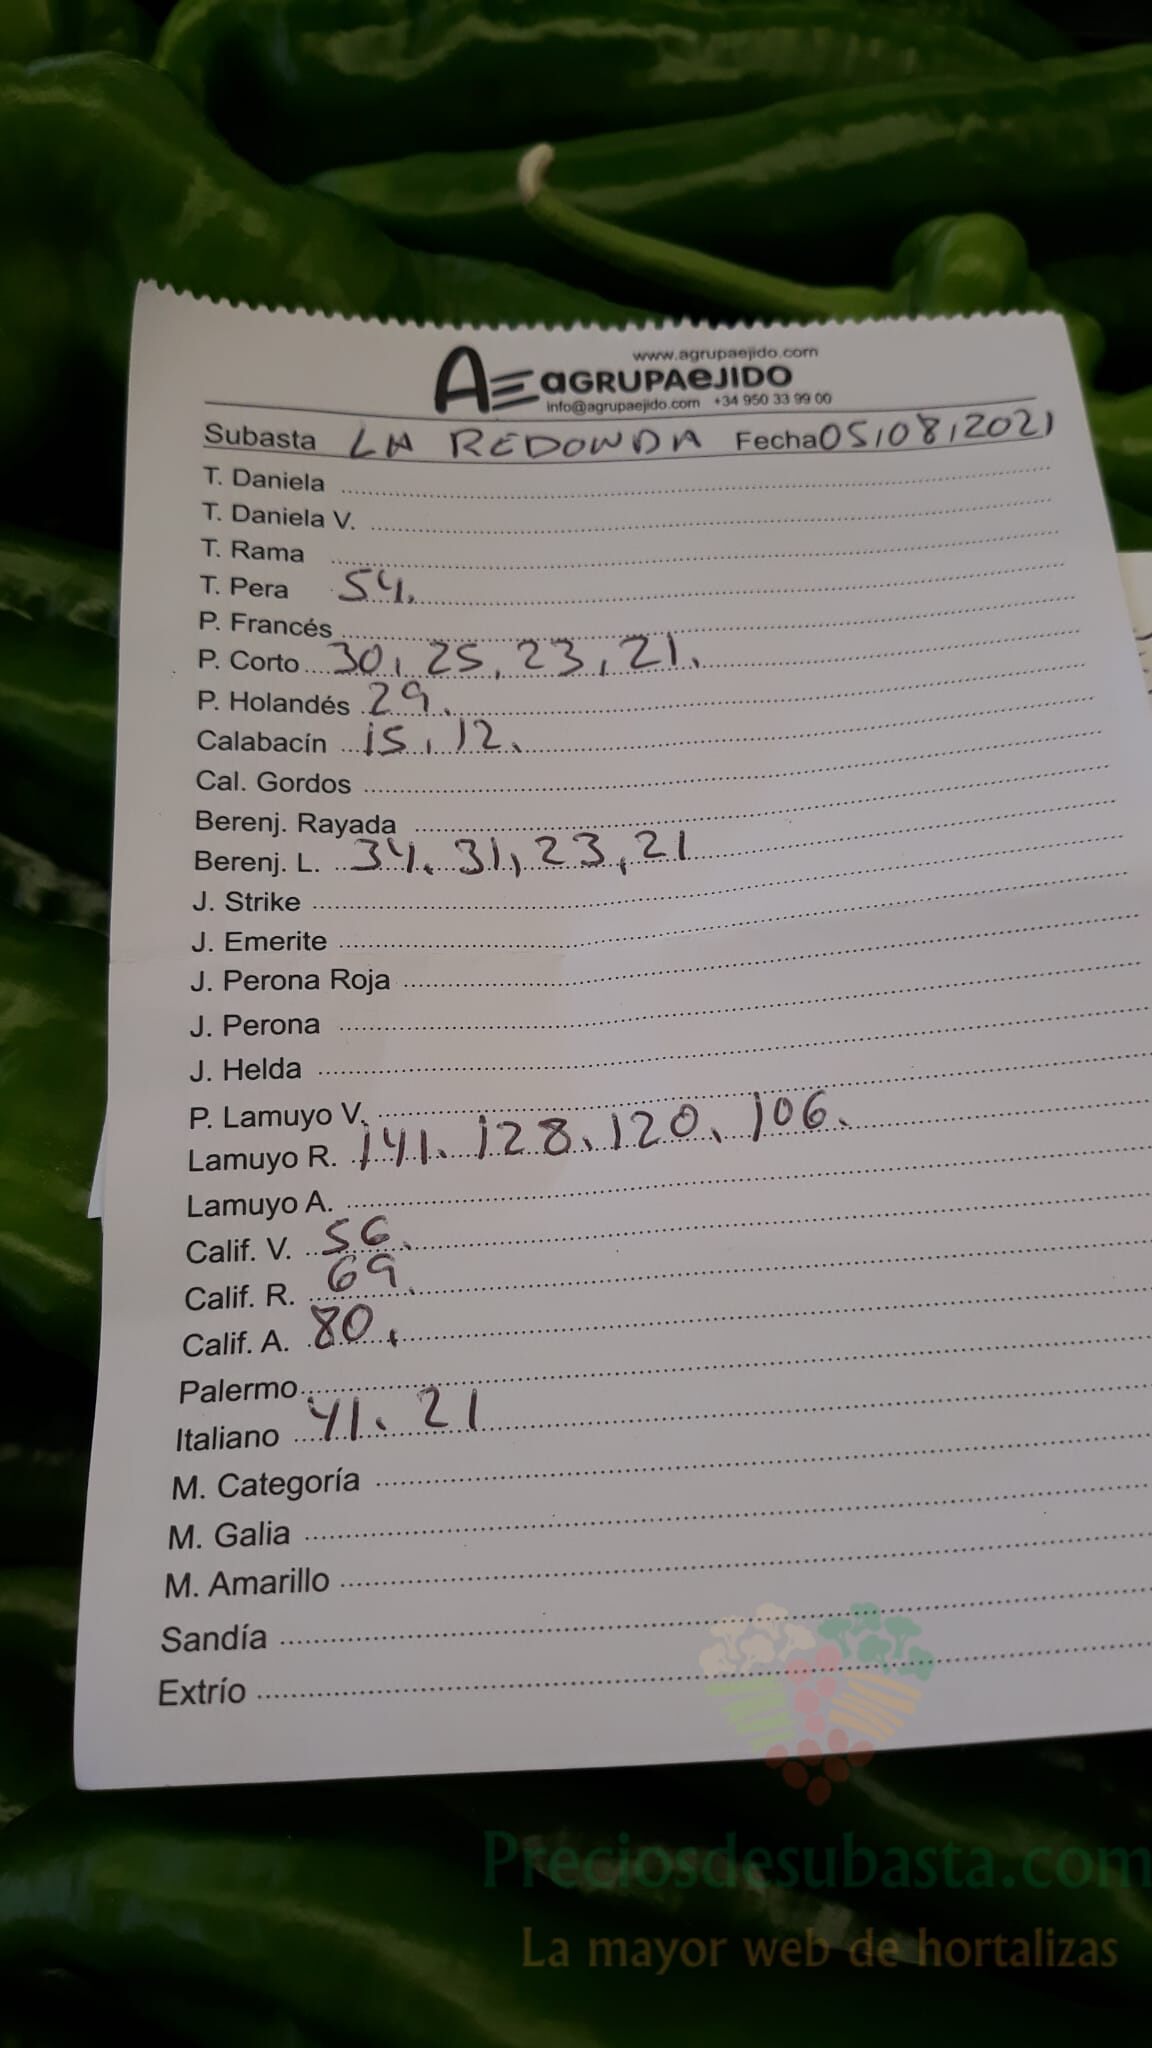 www.agrupaejido.com
AE aGRUPAeJIDO
info@agrupaejido.com +34 950 33 99 00
Subasta LA REDONDA Fecha 05/08/2021
T. Daniela
T. Daniela V.
T. Rama
T. Pera 54.
P. Francés
P. Corto 30, 25, 23, 21.
P. Holandés 29.
Calabacín 15, 12.
Cal. Gordos
Berenj. Rayada
Berenj. L. 34. 31, 23, 21
J. Strike
J. Emerite
J. Perona Roja
J. Perona
J. Helda
P. Lamuyo V.
Lamuyo R. 141. 128. 120. 106.
Lamuyo A.
Calif. V. 56.
Calif. R. 69.
Calif. A. 80.
Palermo
Italiano 41. 21
M. Categoría
M. Galia
M. Amarillo
Sandía
Extrío
Preciosdesubasta.com
La mayor web de hortalizas